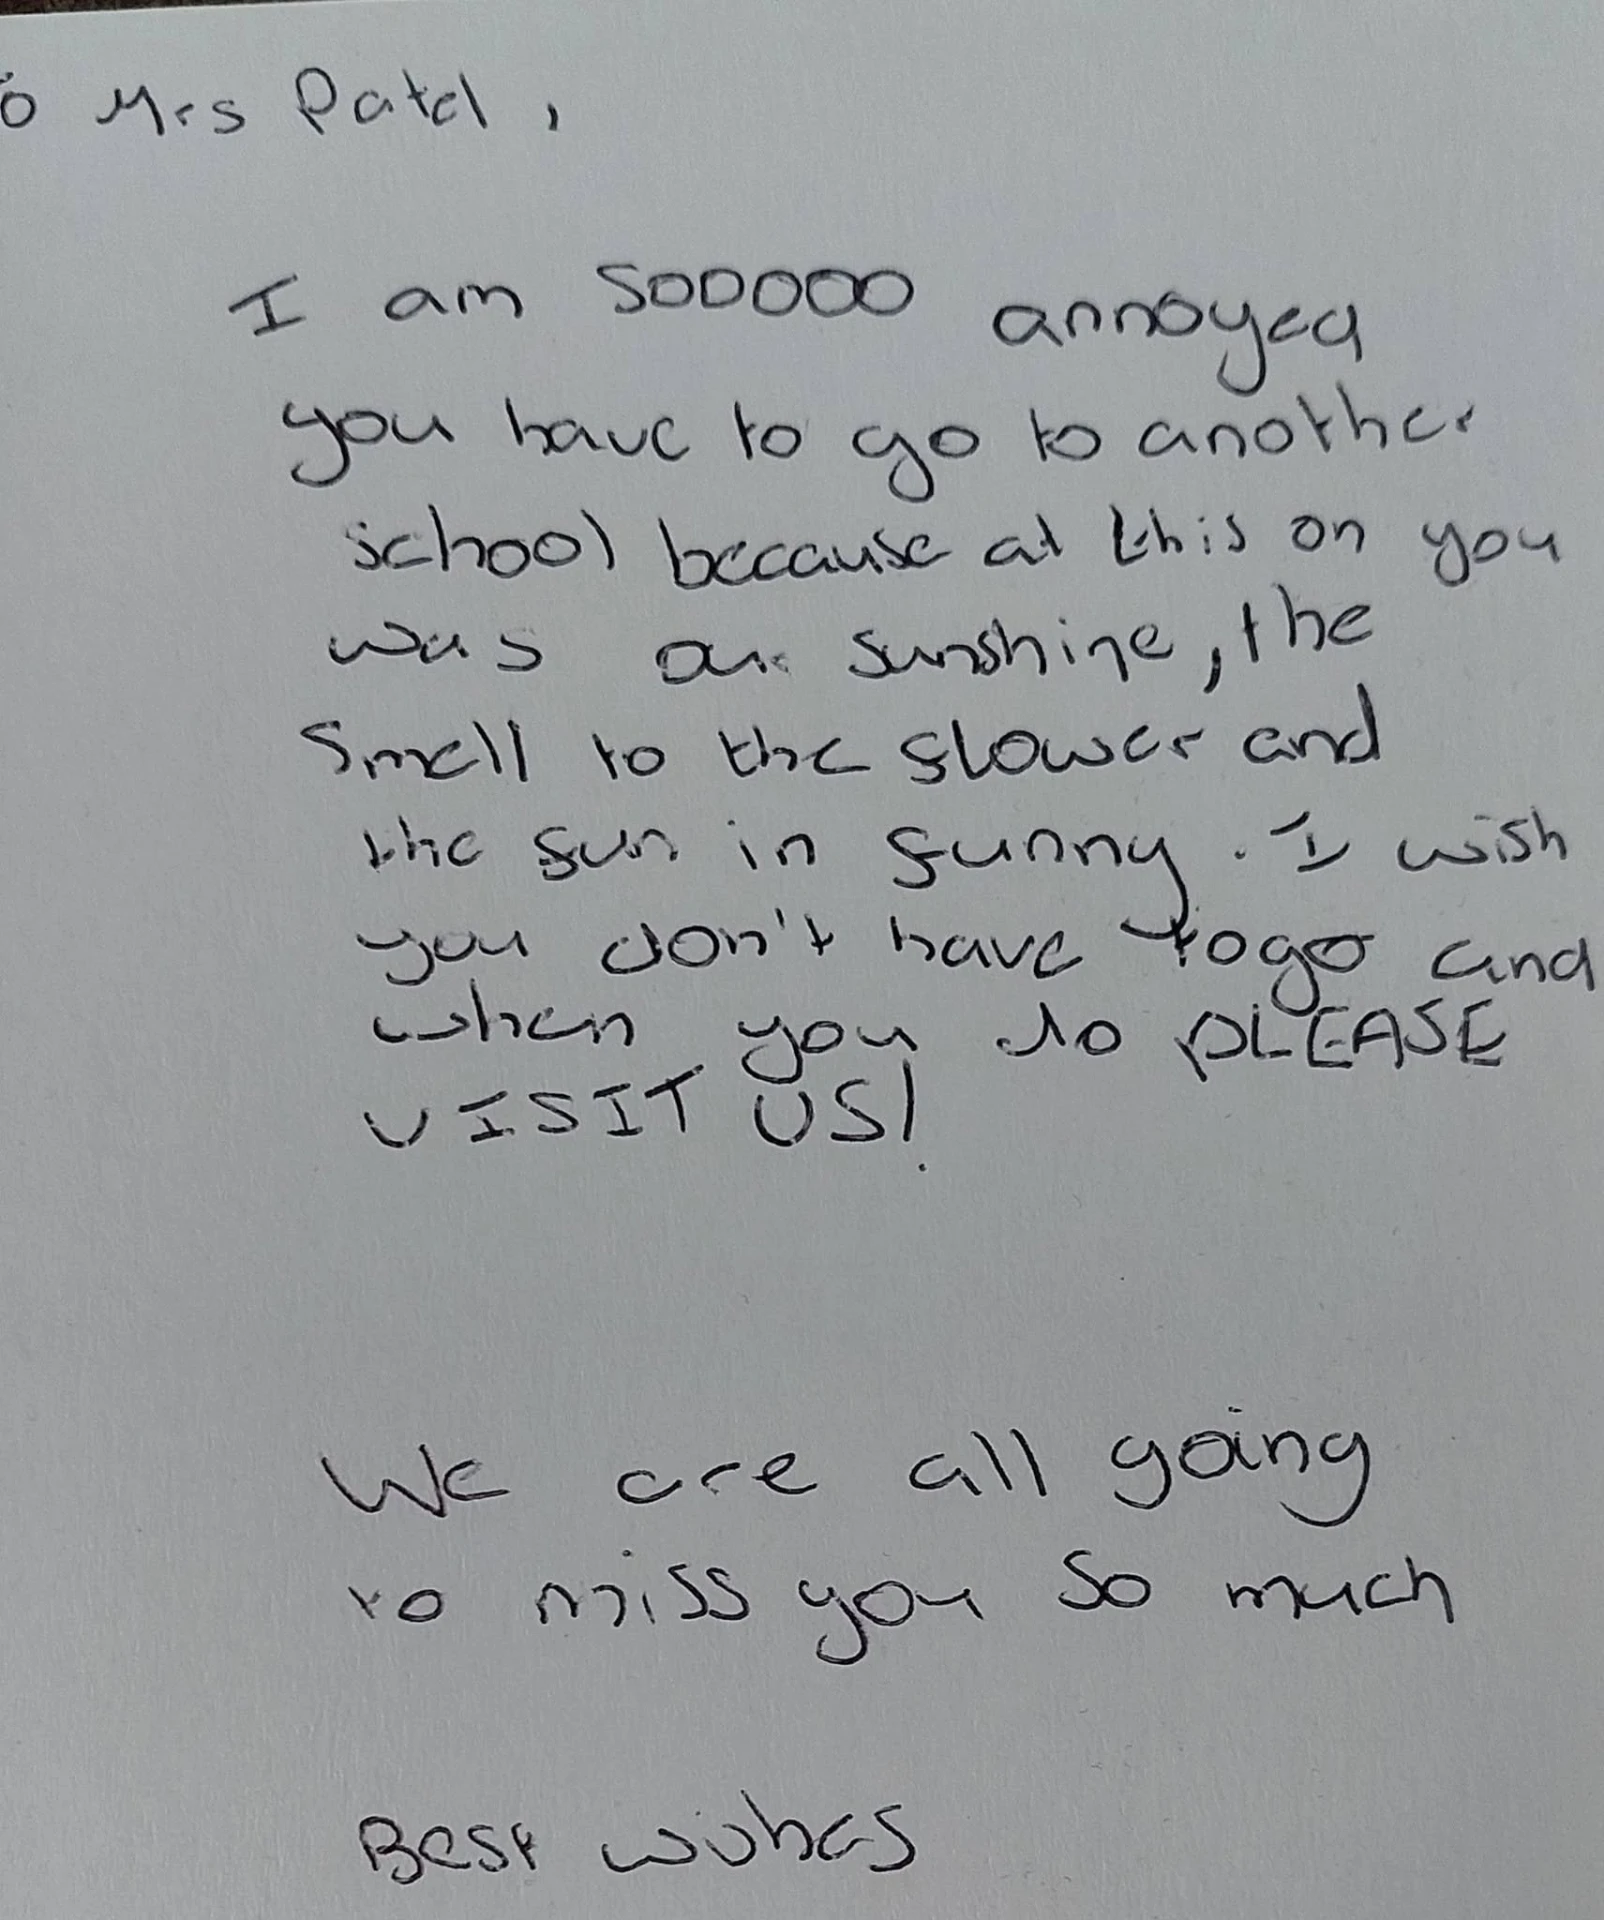 To Mrs Patel,
I am soooooo annoyed
you have to go to another
school because at this on you
was our sunshine, the
smell to the flower and
the fun in funny. I wish
you don't have to go and
when you do PLEASE
VISIT US!
We are all going
to miss you so much
Best wishes